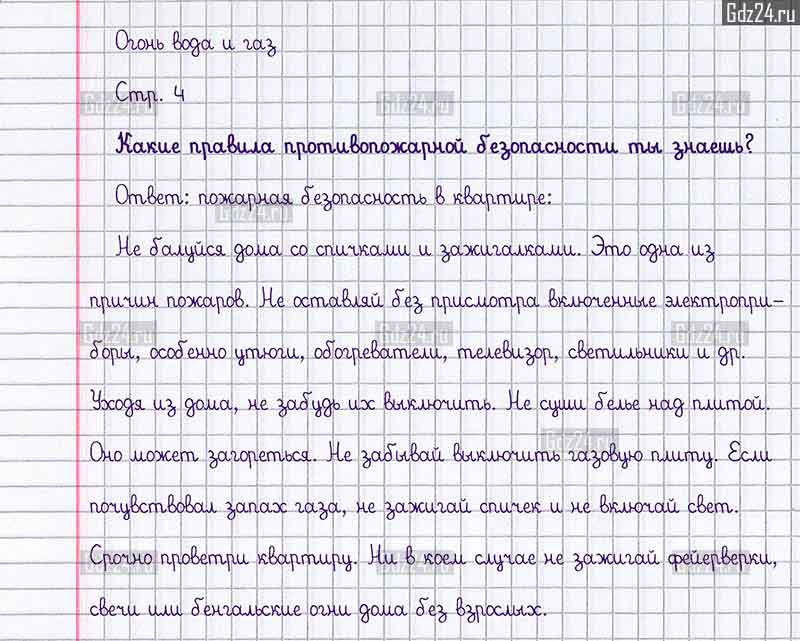 Gdz24.ru
Огонь вода и газ
Стр. 4
Gdz24.ru Gdz24.ru Gdz24.ru
Какие правила противопожарной безопасности ты знаешь?
Ответ: пожарная безопасность в квартире:
Gdz24.ru
Не балуйся дома со спичками и зажигалками. Это одна из
причин пожаров. Не оставляй без присмотра включенные электропри-
Gdz24.ru Gdz24.ru Gdz24.ru
боры, особенно утюги, обогреватели, телевизор, светильники и др.
Уходя из дома, не забудь их выключить. Не суши белье над плитой.
Gdz24.ru
Оно может загореться. Не забывай выключить газовую плиту. Если
почувствовал запах газа, не зажигай спичек и не включай свет.
Срочно проветри квартиру. Ни в коем случае не зажигай фейерверки,
Gdz24.ru Gdz24.ru Gdz24.ru
свечи или бенгальские огни дома без взрослых.